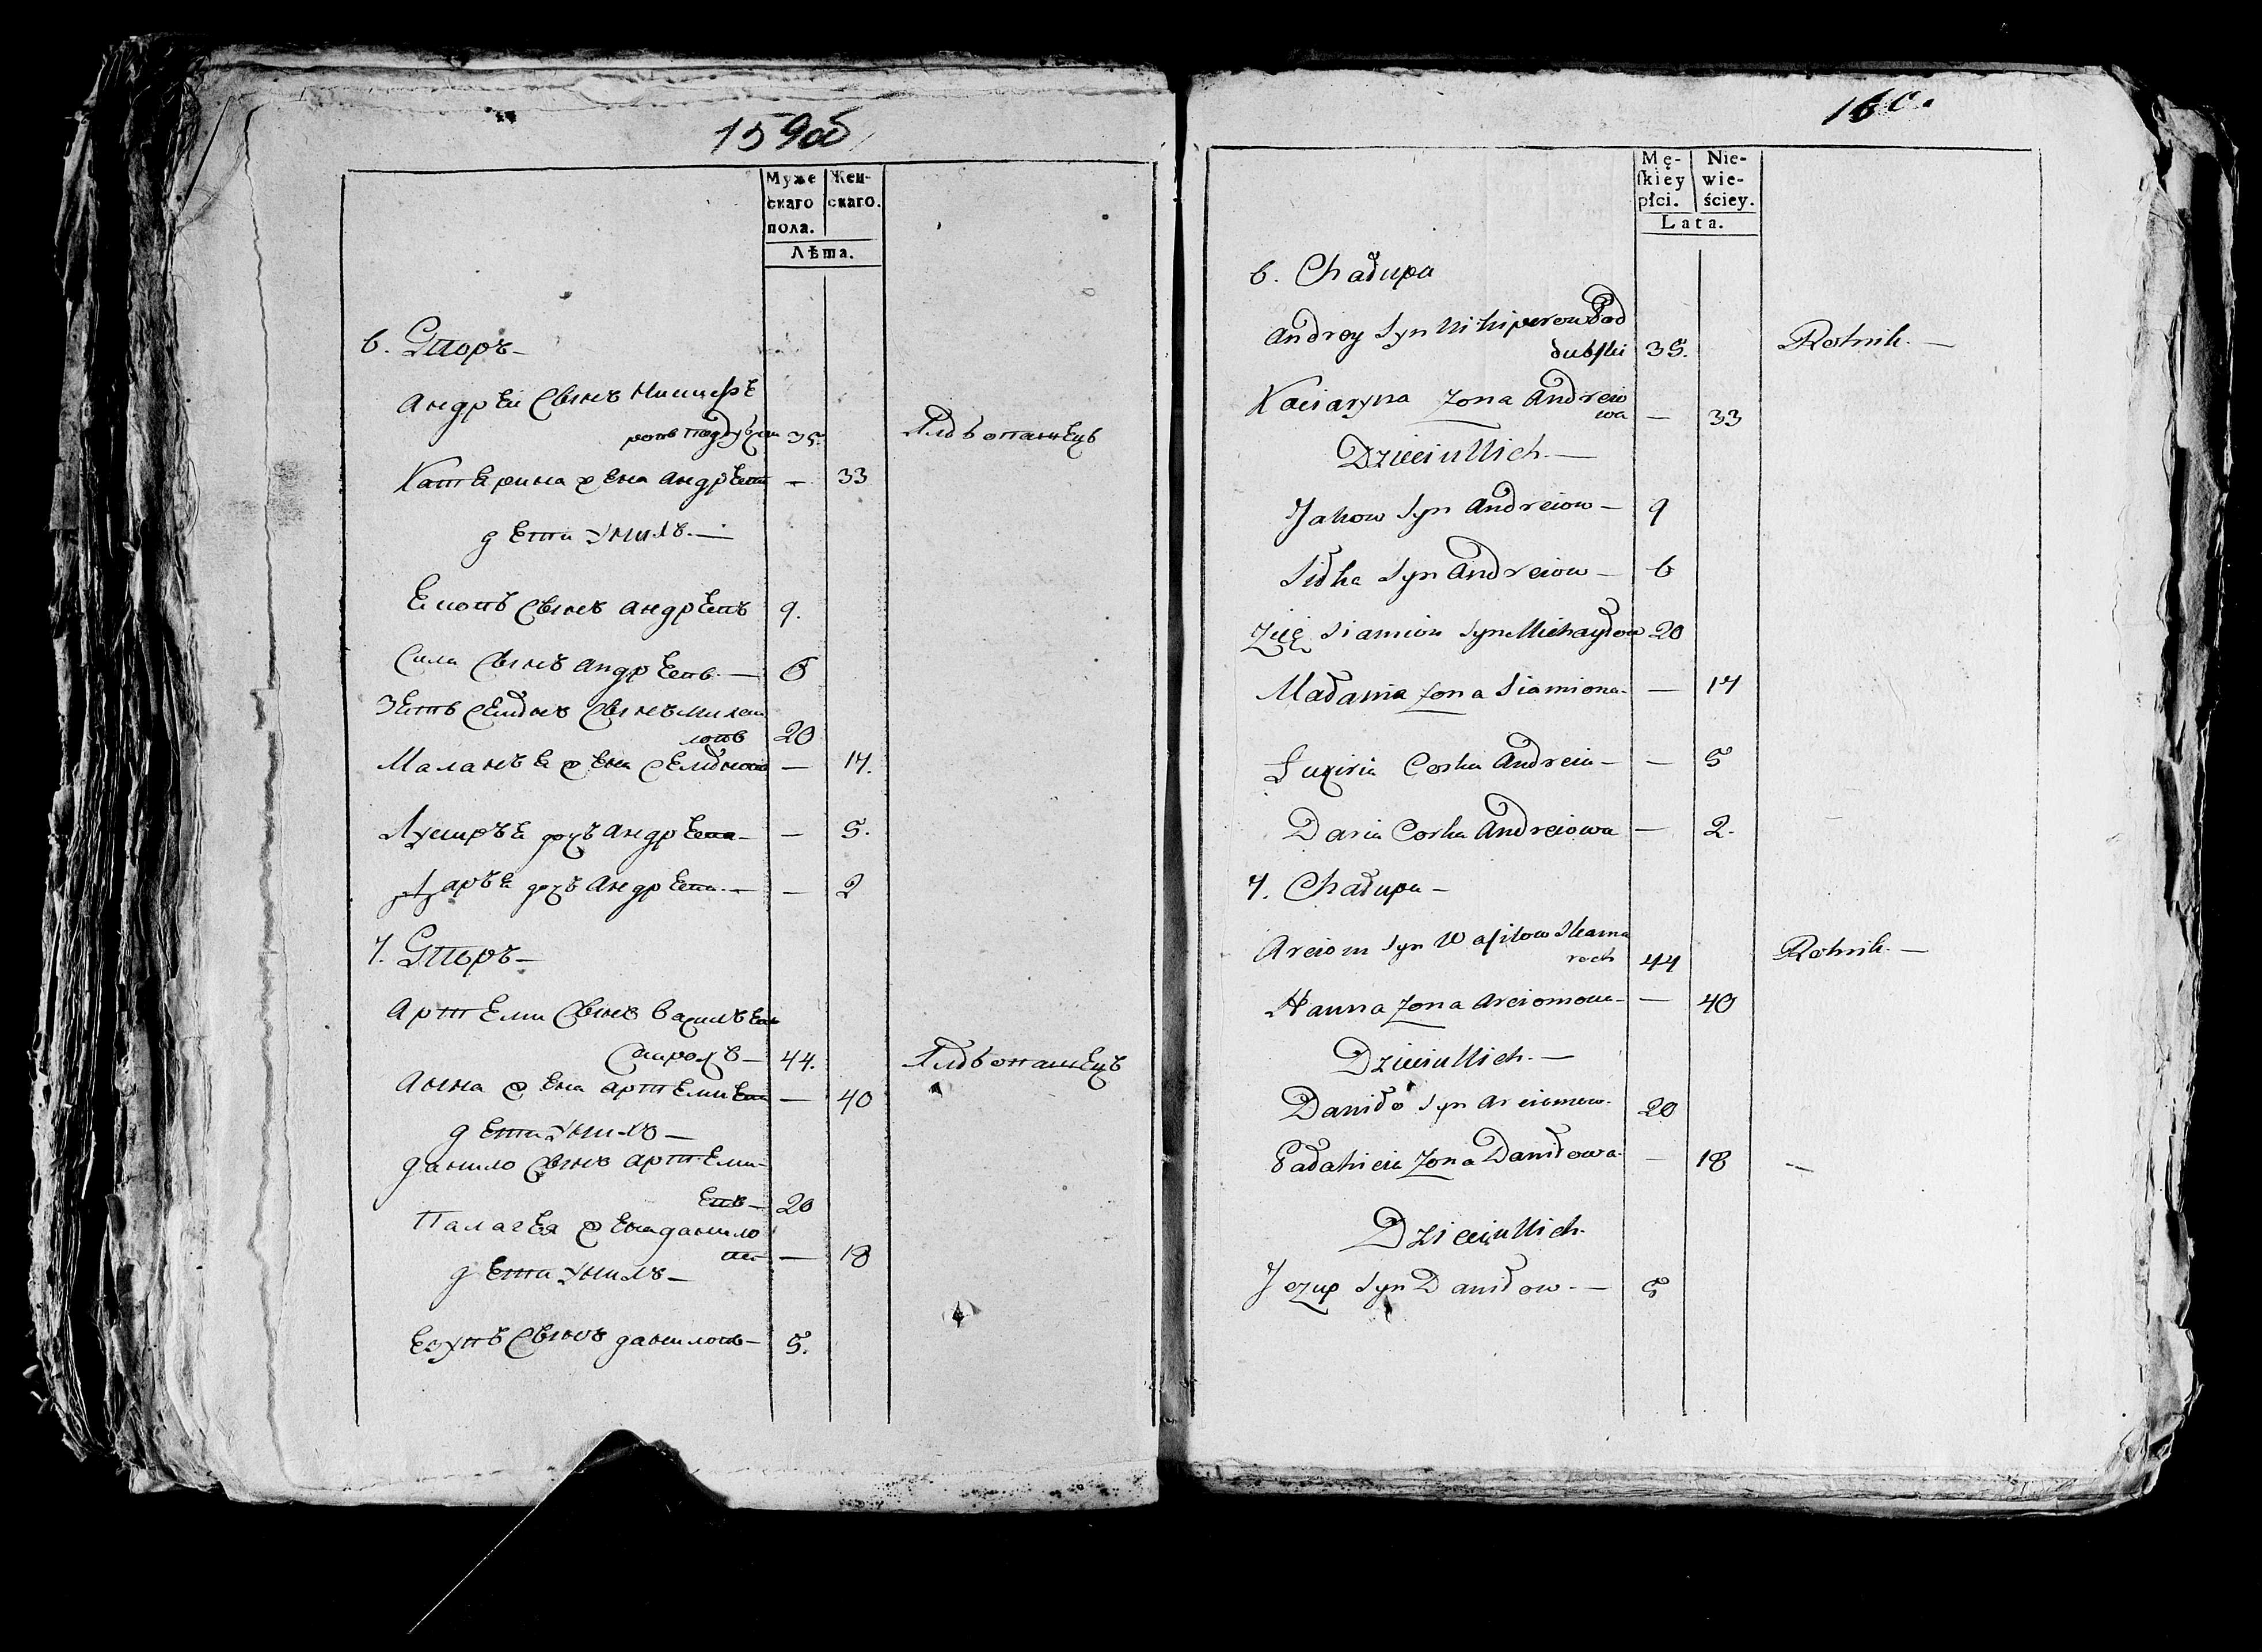 159об
Муже
скаго
пола.
Жен-
скаго.
Лѣта.
6. Дворъ —
Андрей Сынъ Никифе
ровъ Поддубски 35.
Хлѣбопашецъ
Катерина жена Андреева — 33
дети у них. —
Ековъ Сынъ Андреевъ 9.
Сила Сынъ Андреевъ. — 6
Зеть Семионъ Сынъ Михаи
ловъ 20
Маланья жена Семионова — 17.
Лукирья дочь Андреева — — 5.
Дарья дочь Андреева. — — 2
7. Дворъ —
Артеми Сынъ Васильевъ
44.
Хлѣбопашецъ
Анна жена Артемиева — 40
дети у нихъ —
Данило Сынъ Артеми-
евъ — 20
Палагея жена Данило
ва — 18
дети у нихъ —
Езупъ Сынъ Даниловъ — 5.
160.
Mę-
ſkiey
płci.
Nie-
wie-
ściey.
Lata.
6. Chałupa
Andrey Syn Nikiperow Pod
dubſki 35.
Rolnik. —
Kaciaryna Zona Andreio
wa — 33
Dzieci u Nich. —
Jakow Syn Andreiow — 9
Siłka Syn Andreiow — 6
Zięć Siamion Syn Michayłow 20
Małania Zona Siamiona — — 17
Łukiria Corka Andreia — — 5
Daria Corka Andreiowa — 2.
7. Chałupa —
Arciom Syn Waſilow Skama
roch 44
Rolnik. —
Hanna Zona Arciomowa — — 40
Dzieci u Nich. —
Daniło Syn Arciomow. 20
Pałahieia Zona Daniłowa. — 18 —
Dzieci u Nich.
Jezup Syn Daniłow. — 5